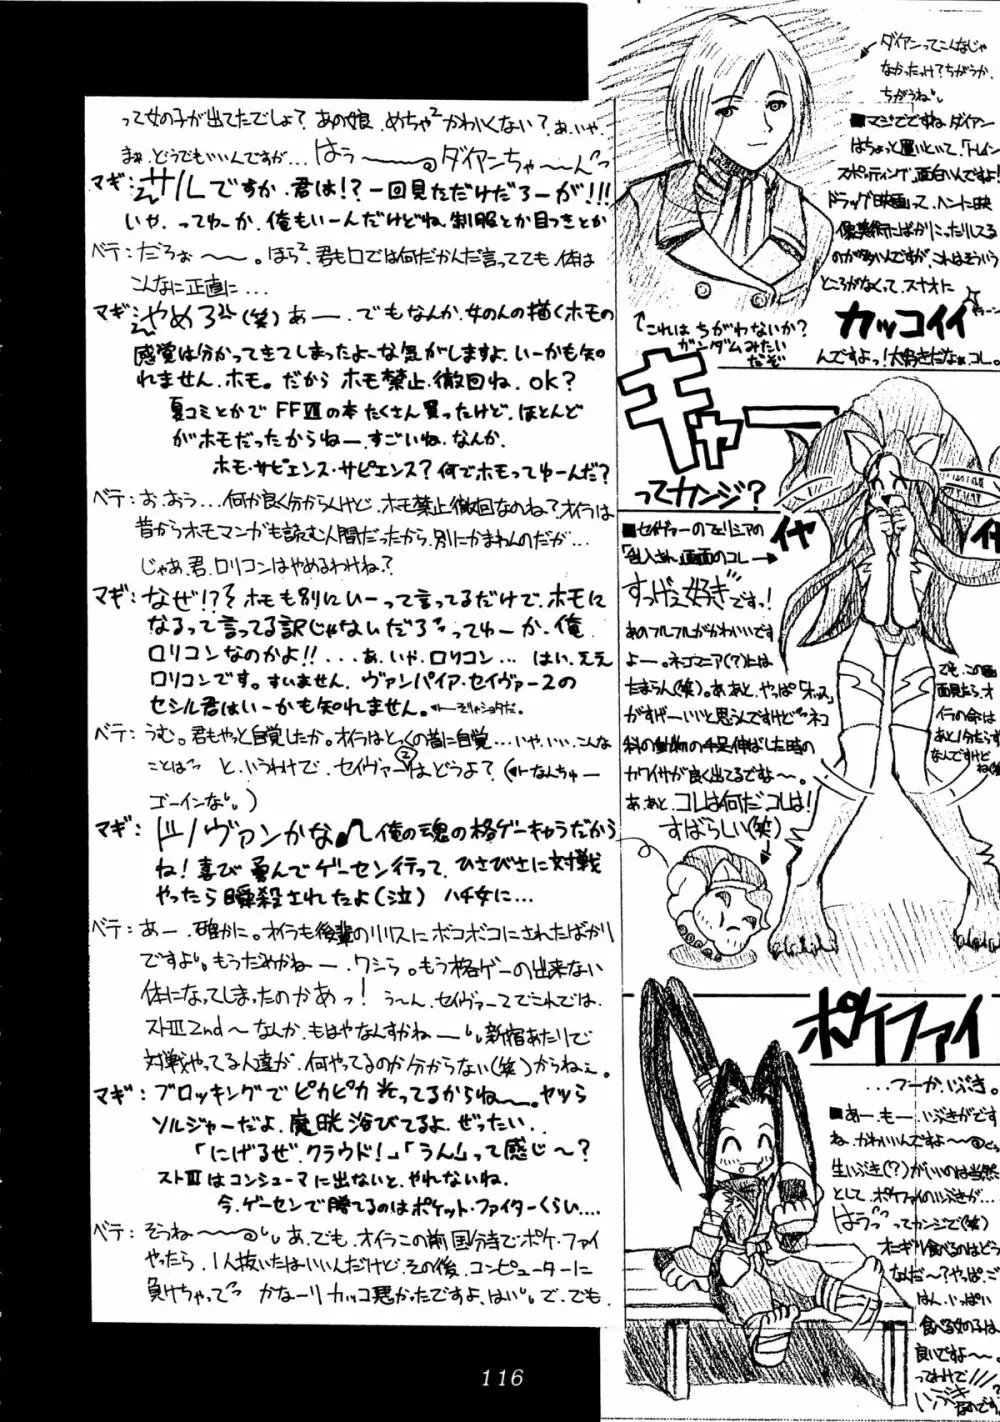 って女の子が出てたでしょ?あの娘、めちゃ²かわいくない?あ、いや、
まぁ、どうでもいいんですが…はぅ〜〜〜ダイアンちゃ〜ん
マギ:サルですか、君は!?一回見ただけだろーが!!!
いや、ってゆーか、俺もいーんだけどね、制服とか目つきとか
ベテ:だろぉ〜〜。ほら²、君も口では何だかんだ言ってても、体は
こんなに正直に…
マギ:やめろ(笑)あー、でもなんか、女のんの描くホモの
感覚は分かってきてしまったよーな気がしますよ、いーかも知
れません、ホモ。だからホモ禁止、撤回ね、OK?
夏コミとかでFFⅦの本たくさん買ったけど、ほとんど
がホモだったからねー、すごいね、なんか、
ホモ・サピエンス・サピエンス?何でホモってゆーんだ?
ベテ:お、おう…何か良く分からんけど、ホモ禁止撤回なのね?オイラは
昔からホモマンガも読む人間だったから、別にかまわんのだが…
じゃあ、君、ロリコンはやめるわけね?
マギ:なぜ!?ホモも別にいーって言ってるだけで、ホモに
なるって言ってる訳じゃないだろってゆーか、俺
ロリコンなのかよ!!...あ、いや、ロリコン…はい、ええ
ロリコンです。すいません、ヴァンパイア・セイヴァー2の
セシル君はいーかも知れません。←ーぞりゃショタだ。
ベテ:うむ。君もやっと自覚したか。オイラはとっくの昔に自覚…いや、いい、こんな
ことは。と、いうわけで、セイヴァー2はどうよ?(←なんちゅー
ゴーインな)
マギ:ドノヴァンかな♪俺の魂の格ゲーキャラだから
ね!喜び勇んでゲーセン行って、ひさびさに対戦
やったら瞬殺されたよ(泣)ハチ女に…
ベテ:あー、確かに。オイラも後輩のリリスにボコボコにされたばかり
ですよ。もうだめかねー、ワシら。もう格ゲーの出来ない
体になってしまったのかあっ!う〜ん、セイヴァー2でこれでは、
ストⅢ2nd〜なんか、もはやなんすかねー、新宿あたりで
対戦やってる人達が、何やってるのか分からない(笑)からねぇ。
マギ:ブロッキングでピカピカ光ってるからね〜、ヤツら
ソルジャーだよ、魔晄浴びてるよ、ぜったい、
「にげるぜ、クラウド!」「うん」って感じ〜?
ストⅢはコンシューマに出ないと、やれないね、
今、ゲーセンで勝てるのはポケット・ファイターくらい…
ベテ:そうね〜〜、あ、でも、オイラこの前国分寺でポケ・ファイ
やったら、1人抜いたはいいんだけど、その後、コンピューターに
負けちゃって かな〜りカッコ悪かったですよ、はい、で、でも、
116
ダイアンってこんなじゃ
なかったっけ?ちがうか、
ちがうね。
■マジでですね、ダイアン
はちょっと置いといて、「トレイン
スポッティング」、面白いんですよ!
ドラッグ映画って、ヘンに映
像美術にばかりこったりしてる
のが多いんですが、これはそういう
ところがなくて、スナオに
カッコイイ
んですよっ!大好きだなぁ、コレ。
これはちがわないか?
ガンダムみたい
だぞ
キャー
ってカンジ?
■セイヴァーのフェリシアの
「乱入され」画面のコレ→
すっげぇ好きですっ!
あのフルフルがかわいいです
よー。ネコマニア(?)には
たまらん(笑)。あ、あと、やっぱ「ホッス」
がすげーいいと思うんですけど ネコ
科の動物の手足伸ばした時の
カワイサが良く出てるですよ〜。
あ、あと、コレは何だコレは!
すばらしい(笑)
イヤ
イヤ
でも、この画
面見たら、オ
イラの命は
あと1分たらず
なんですけど
ね(笑)
ポケファイ
…フーか、いぶき。
■あー、もー、いぶきがです
ね、かわいいんですよ〜〜
生いぶき(?)がいいのは当然
として、ポケファイのいぶきが…
はうっってカンジで(笑)
オニギリ食べるのはどう
なんだ〜?やっぱ、ご
はん、いっぱい
食べる女の子は
良いですよ〜〜。
ってわけで
いぶき